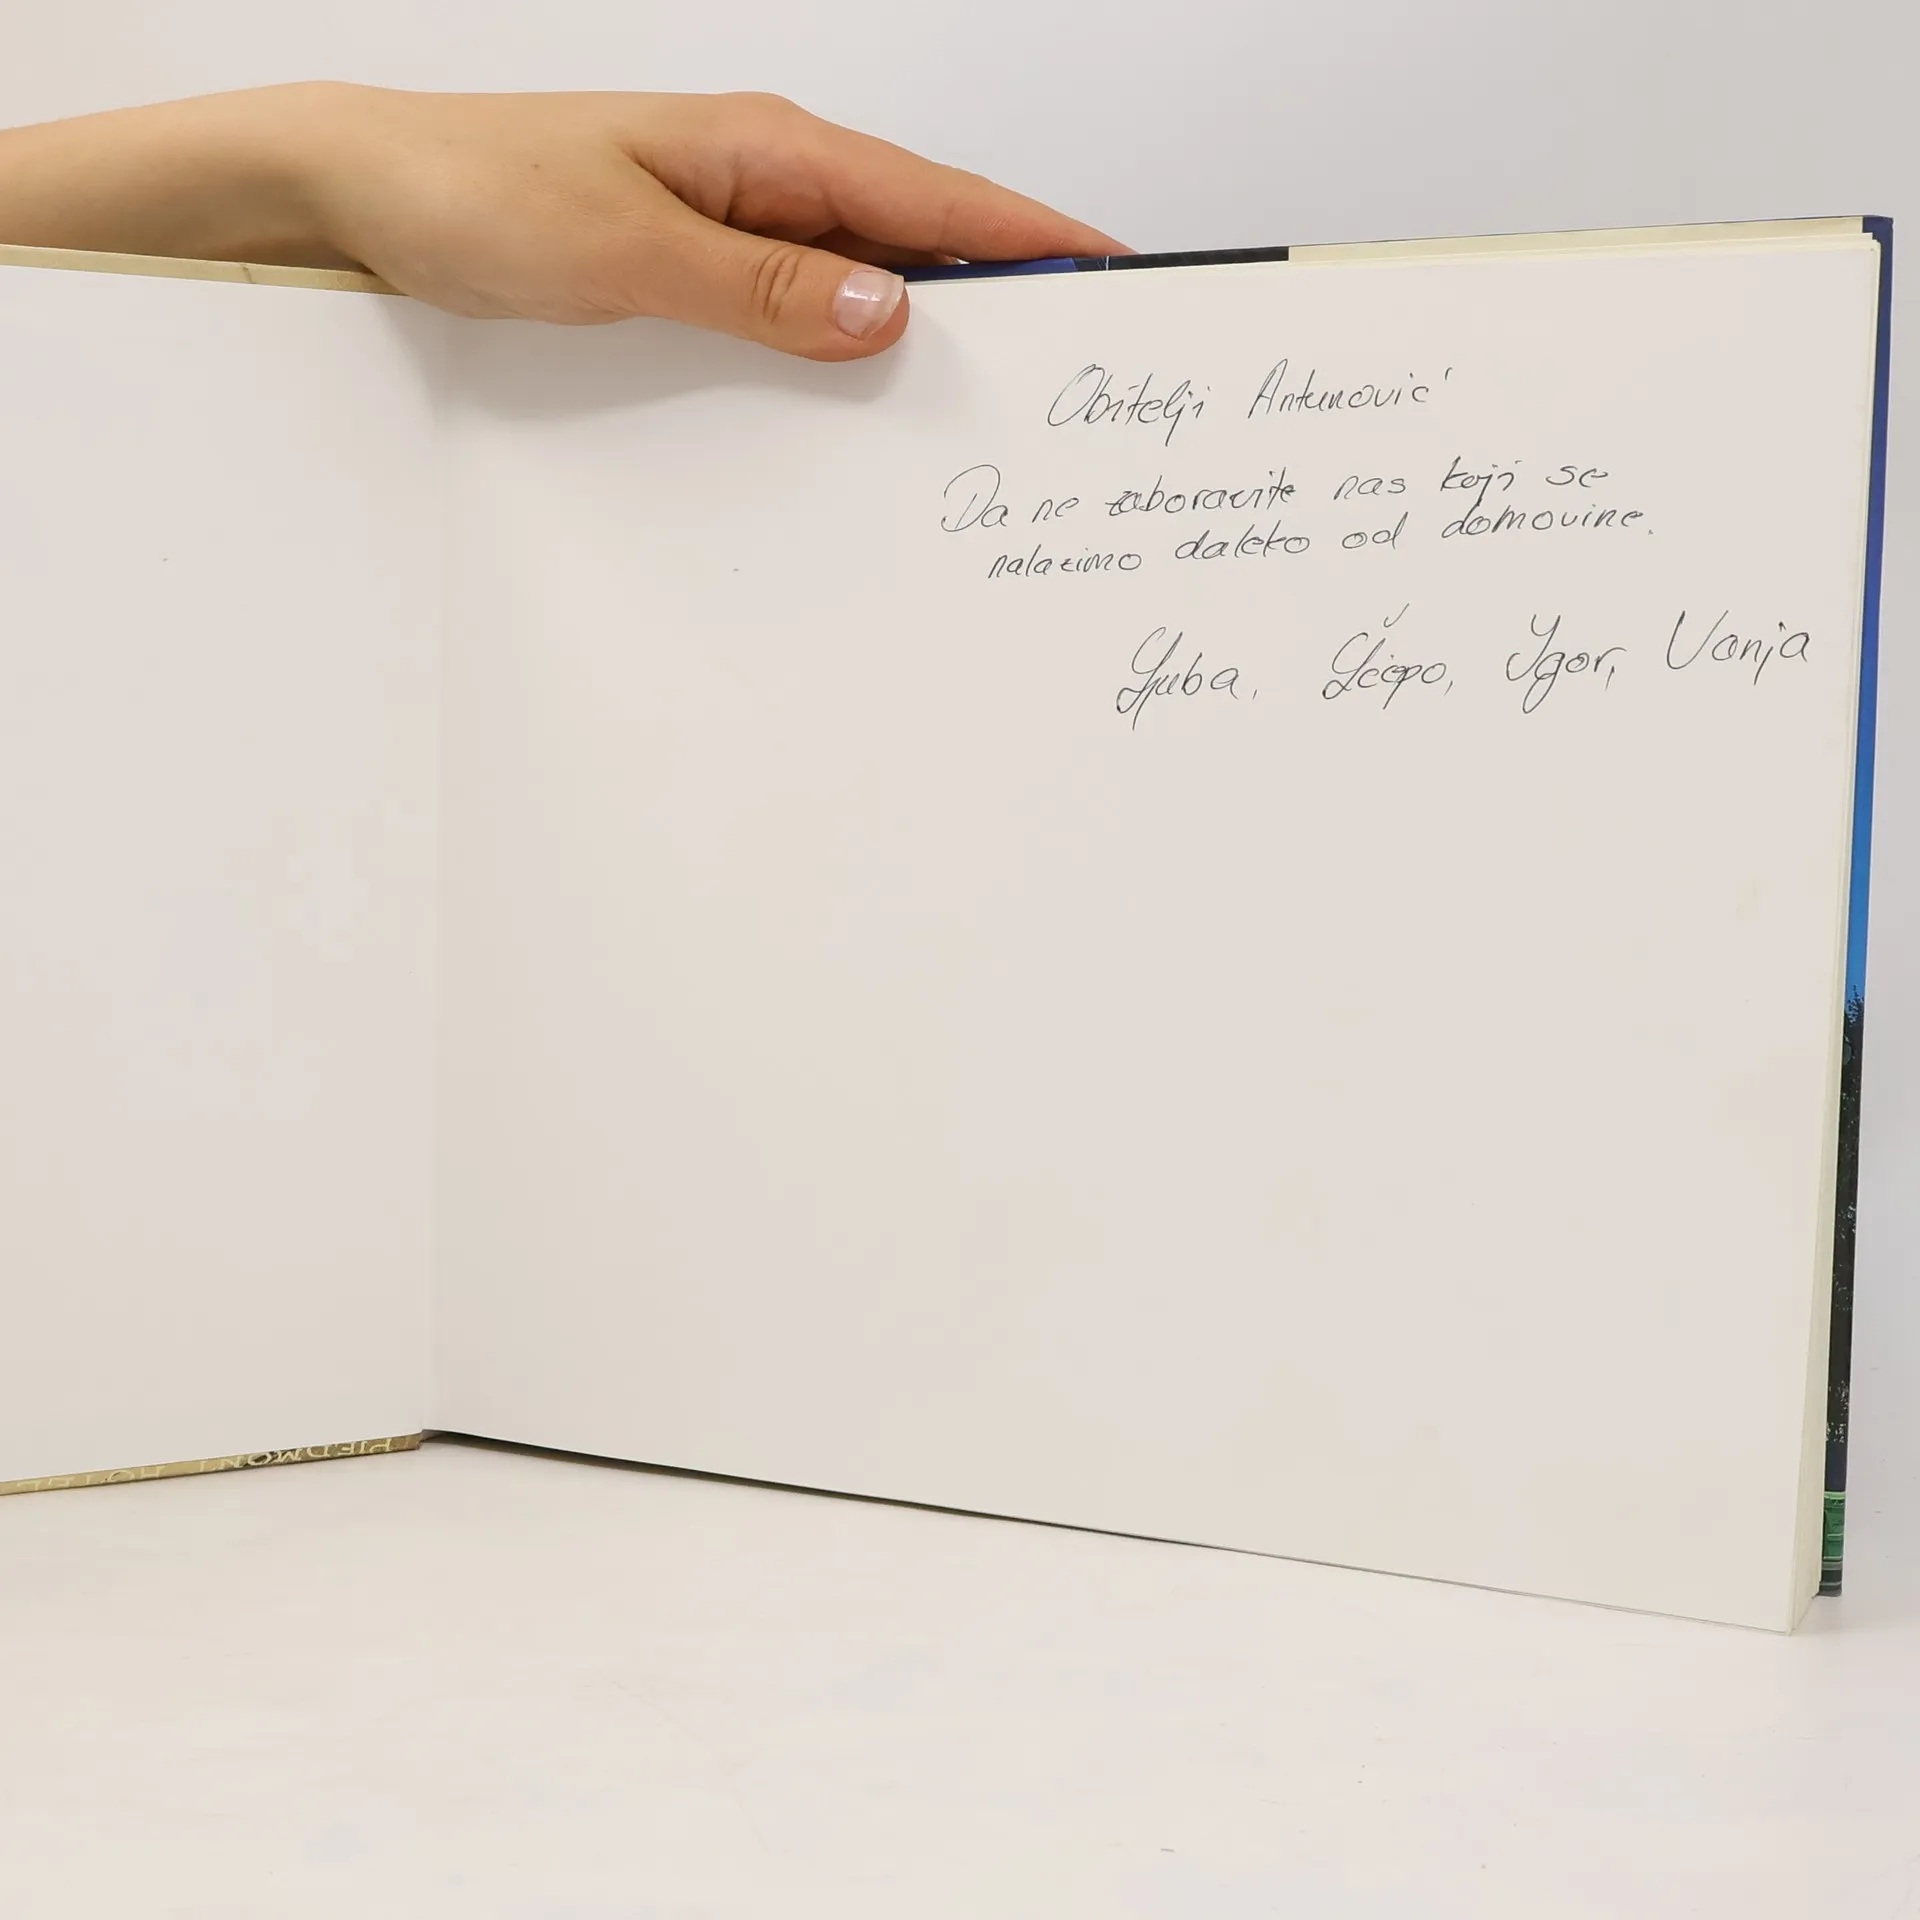 Obitelji Antunović
Da ne zaboravite nas koji se
nalazimo daleko od domovine.
Ljuba, Šćepo, Igor, Vanja
PIEDMONT HOTEL